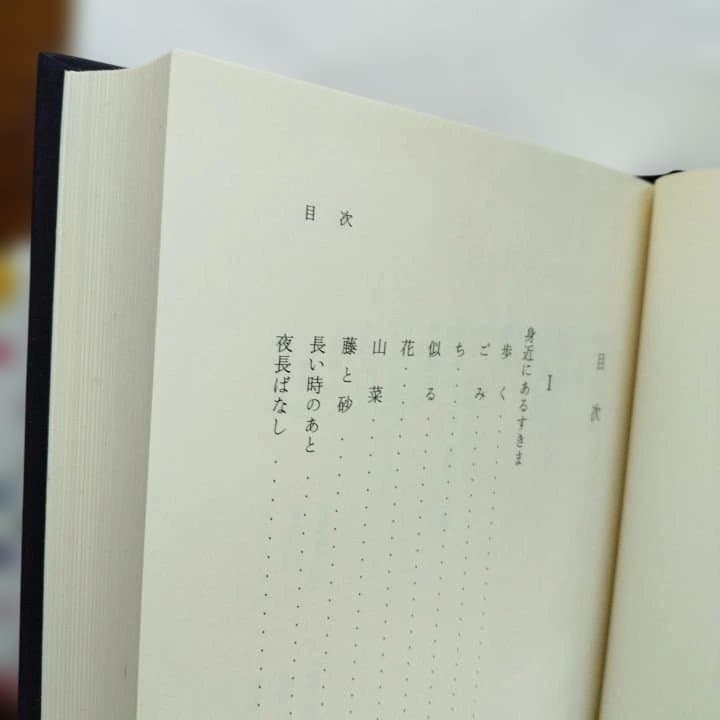 目次
目次
I
身近にあるすきま
歩く
ごみ
ち
似る
花
山菜
藤と砂
長い時のあと
夜長ばなし